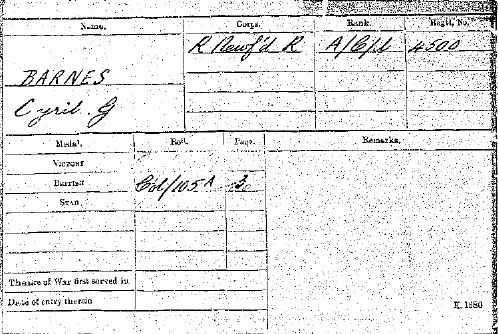 Name. Corps. Rank. Regtl. No.
BARNES R Newf'd R A/Cpl 4500
Cyril. G
Medal. Roll. Page. Remarks.
VICTORY
BRITISH Col/105A
STAR
Theatre of War first served in
Date of entry therein
K. 1380